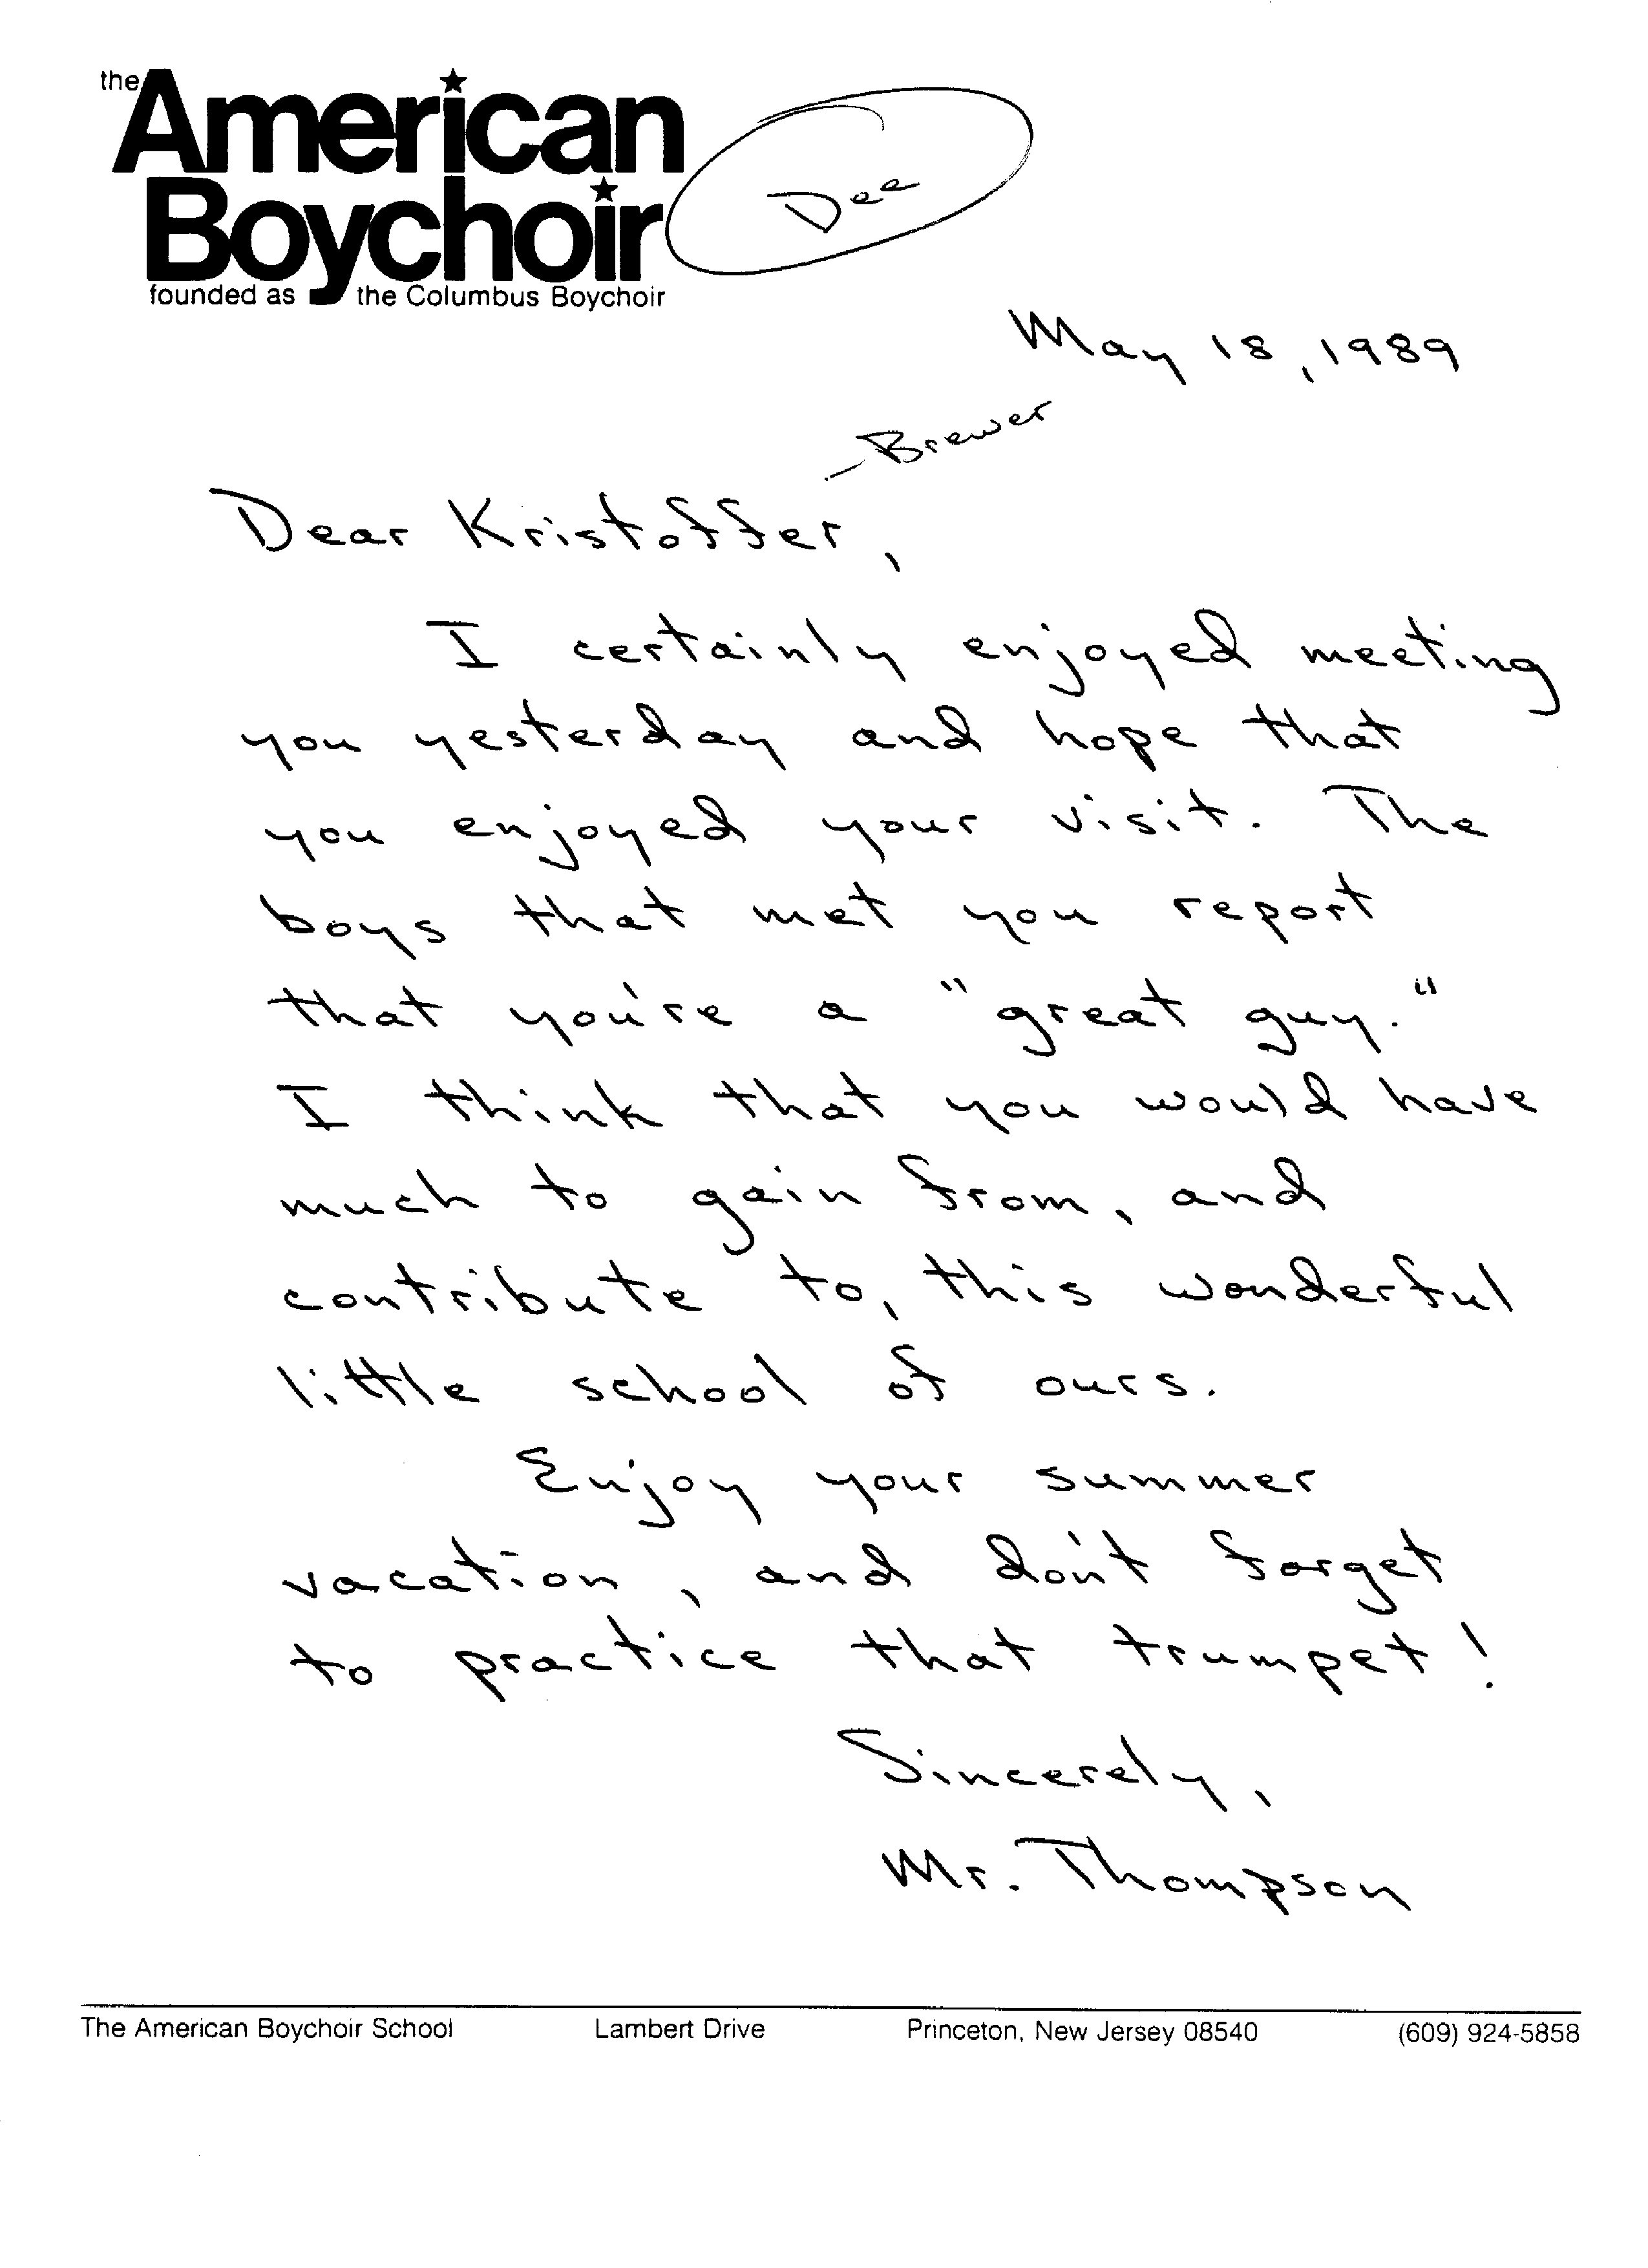 the
American
Boychoir
founded as the Columbus Boychoir
Dee
May 18, 1989
- Brewer
Dear Kristoffer,
I certainly enjoyed meeting
you yesterday and hope that
you enjoyed your visit. The
boys that met you report
that you're a "great guy."
I think that you would have
much to gain from, and
contribute to, this wonderful
little school of ours.
Enjoy your summer
vacation, and don't forget
to practice that trumpet!
Sincerely,
Mr. Thompson
The American Boychoir School Lambert Drive Princeton, New Jersey 08540 (609) 924-5858